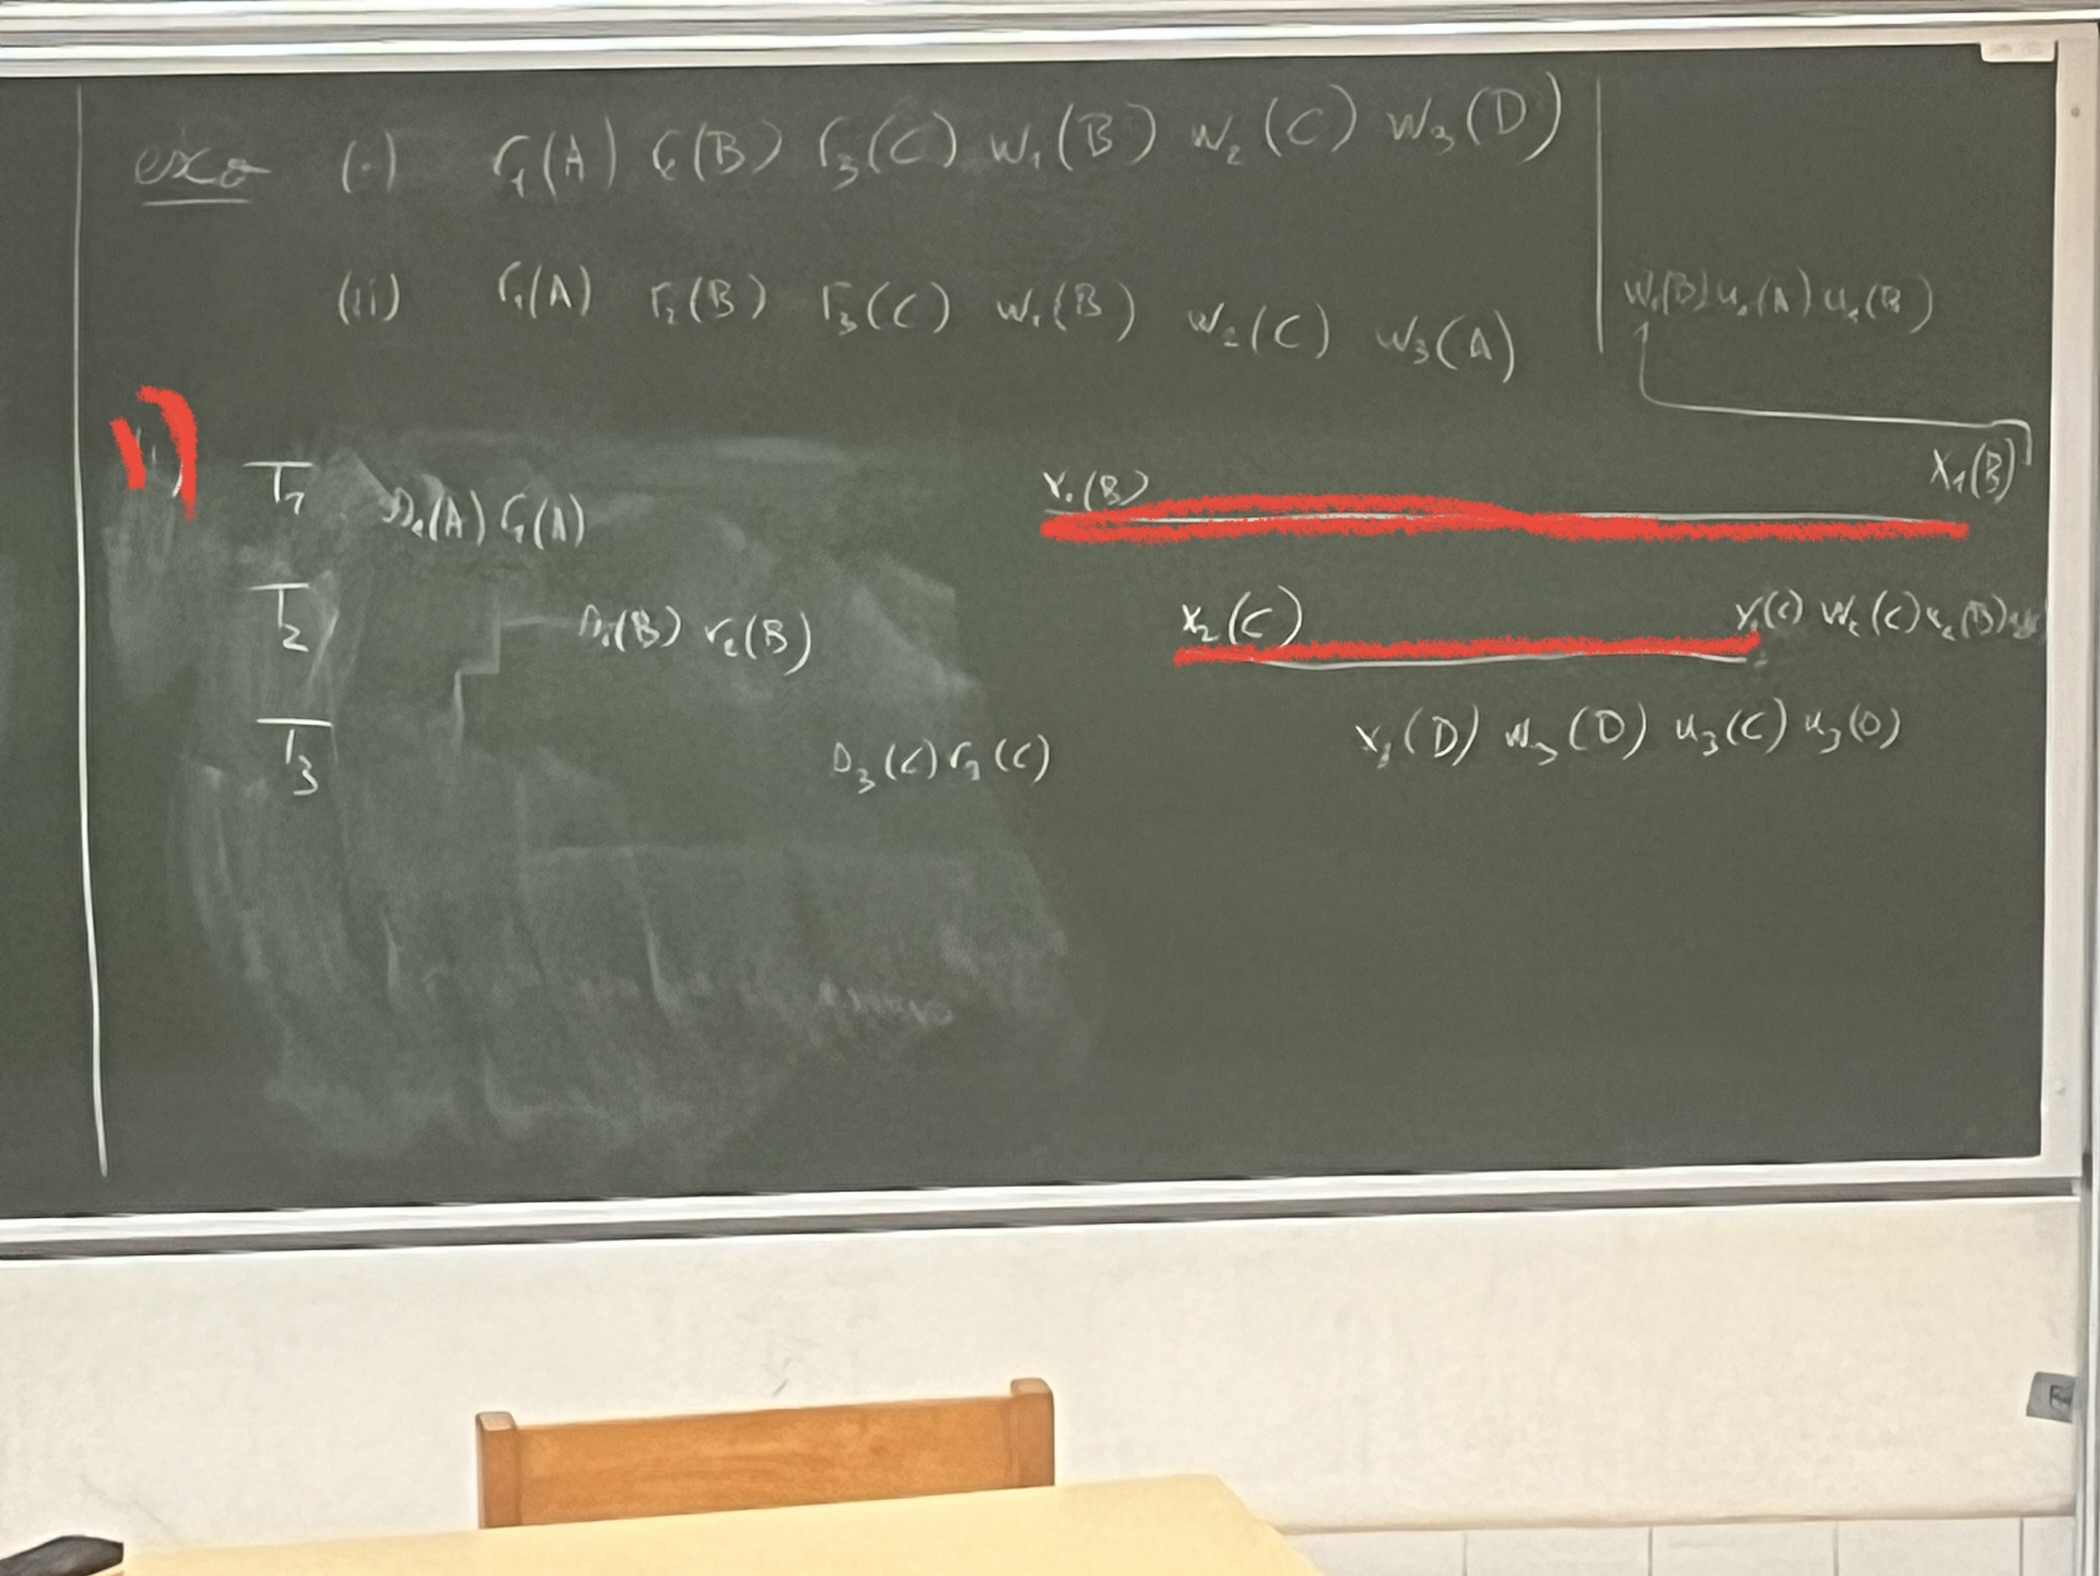 exo (i) r₁(A) r₂(B) r₃(C) w₁(B) w₂(C) w₃(D)
(ii) r₁(A) r₂(B) r₃(C) w₁(B) w₂(C) w₃(A)
w₁(B) u₁(A) u₁(B)
i)
T₁ s₁(A) r₁(A) x₁(B) x₁(B)
T₂ s₂(B) r₂(B) x₂(C) x₂(C) w₂(C) u₂(B)
T₃ s₃(C) r₃(C) x₃(D) w₃(D) u₃(C) u₃(D)